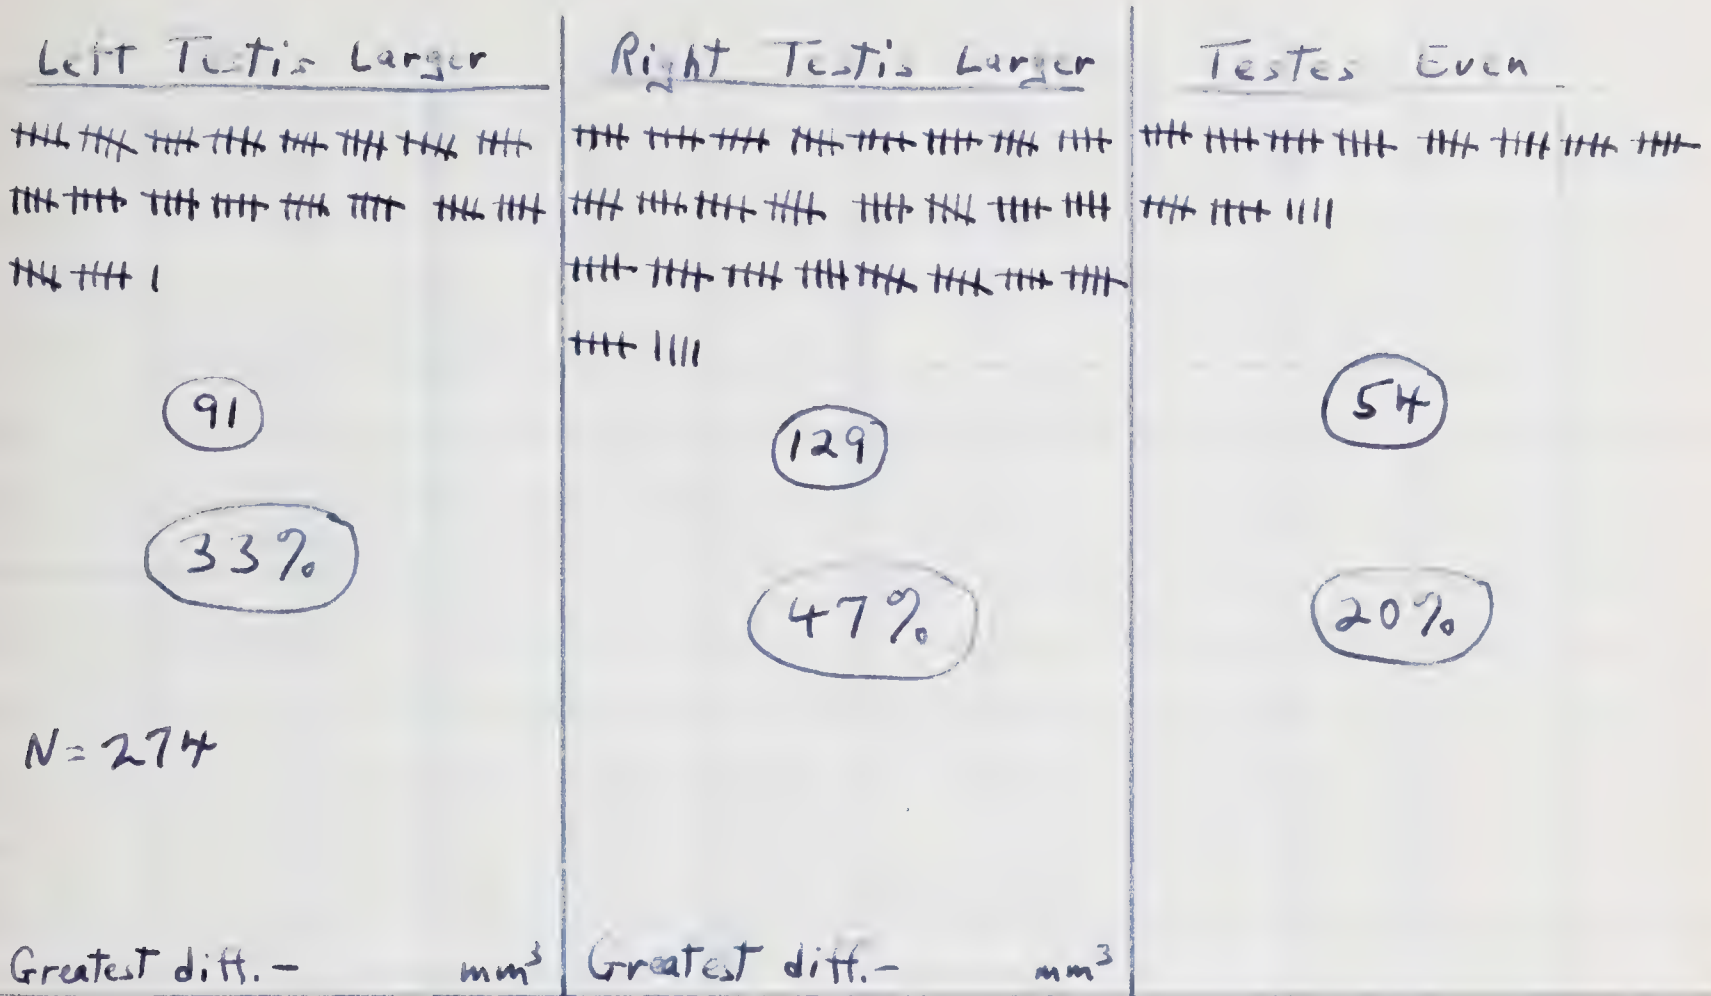 Left Testis Larger
91
33%
N = 274
Greatest diff. - mm³
Right Testis Larger
129
47%
Greatest diff. - mm³
Testes Even
54
20%